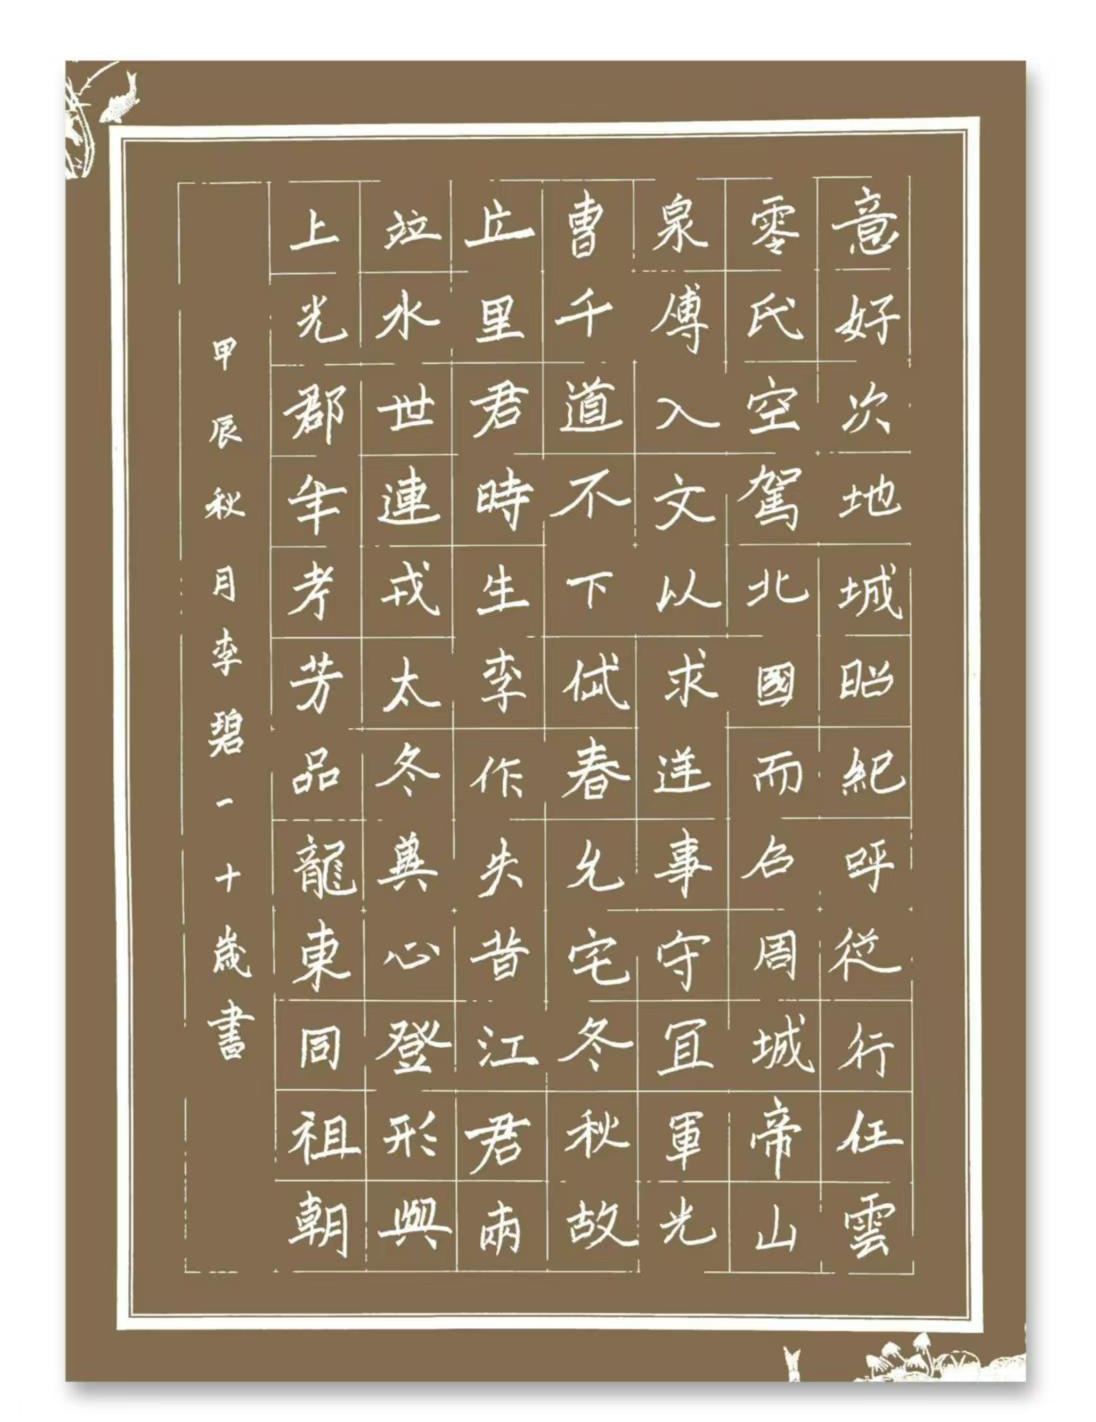 意好次地城昭紀呼從行任雲
零氏空駕北國而召周城帝山
泉傅入文以求送事守冝軍光
曹千道不下侙春允宅冬秋故
丘里君時生李作失昔江君兩
竝水世連戎太冬典心登形與
上光郡年考芳品龍東同祖朝
甲辰秋月李碧一十歲書